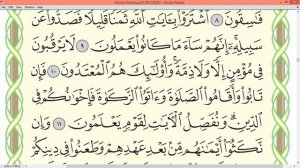 فَٰسِقُونَ ٨ ٱشْتَرَوْا۟ بِـَٔايَٰتِ ٱللَّهِ ثَمَنًا قَلِيلًا فَصَدُّوا۟ عَن
سَبِيلِهِۦٓ ۚ إِنَّهُمْ سَآءَ مَا كَانُوا۟ يَعْمَلُونَ ٩ لَا يَرْقُبُونَ
فِى مُؤْمِنٍ إِلًّا وَلَا ذِمَّةً ۚ وَأُو۟لَٰٓئِكَ هُمُ ٱلْمُعْتَدُونَ ١٠ فَإِن
تَابُوا۟ وَأَقَامُوا۟ ٱلصَّلَوٰةَ وَءَاتَوُا۟ ٱلزَّكَوٰةَ فَإِخْوَٰنُكُمْ فِى
ٱلدِّينِ ۗ وَنُفَصِّلُ ٱلْـَٔايَٰتِ لِقَوْمٍ يَعْلَمُونَ ١١ وَإِن
نَّكَثُوٓا۟ أَيْمَٰنَهُم مِّنۢ بَعْدِ عَهْدِهِمْ وَطَعَنُوا۟ فِى دِينِكُمْ